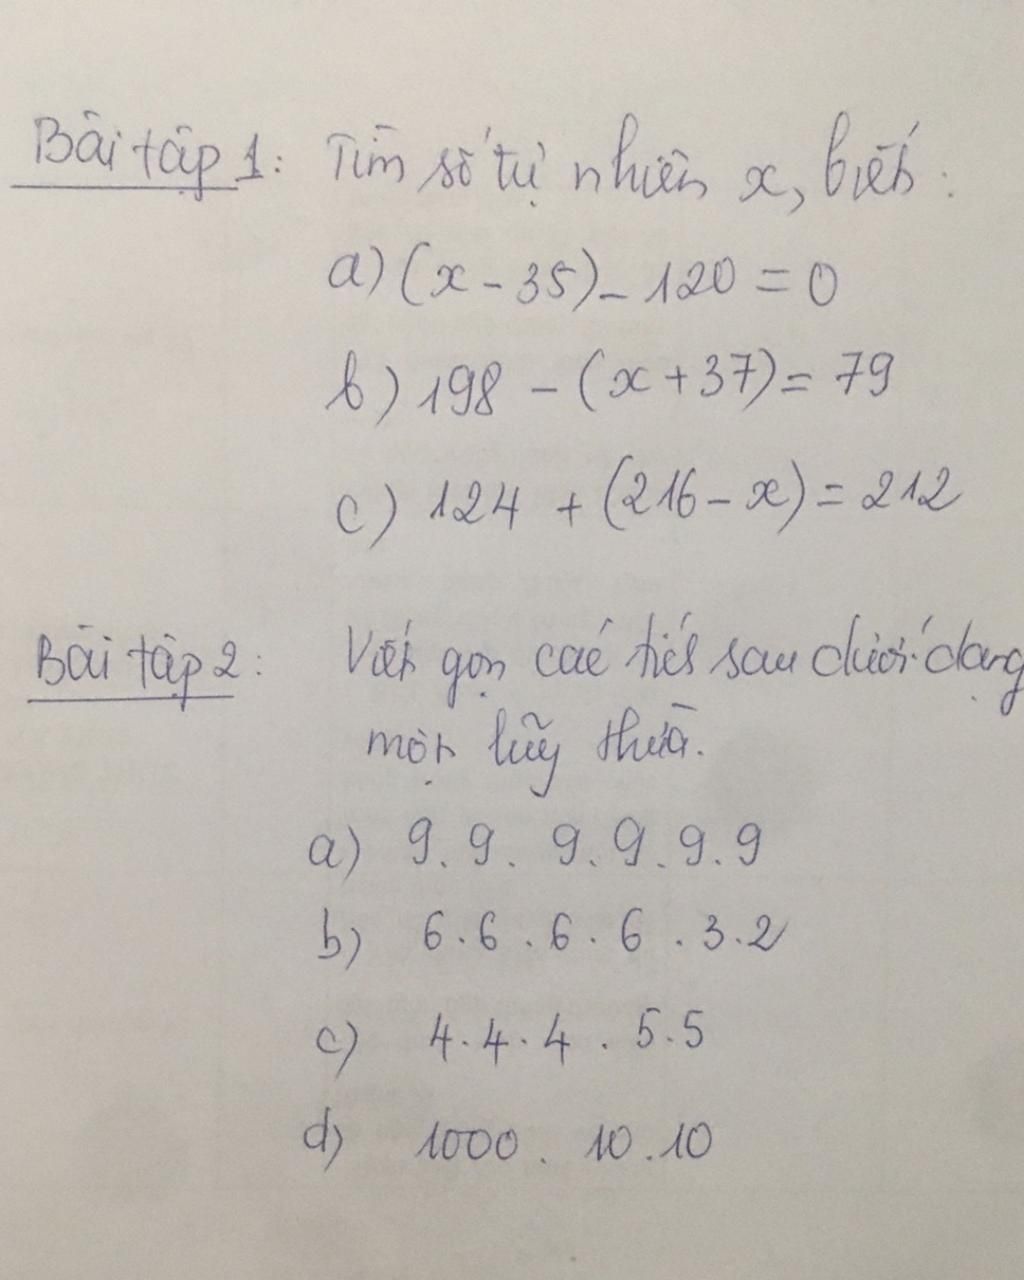 Bài tập 1: Tìm số tự nhiên x, biết:
a) (x - 35) - 120 = 0
b) 198 - (x + 37) = 79
c) 124 + (216 - x) = 212
Bài tập 2: Viết gọn các tích sau dưới dạng
một lũy thừa.
a) 9. 9. 9. 9. 9. 9
b) 6. 6. 6. 6. 3. 2
c) 4. 4. 4. 5. 5
d) 1000. 10. 10